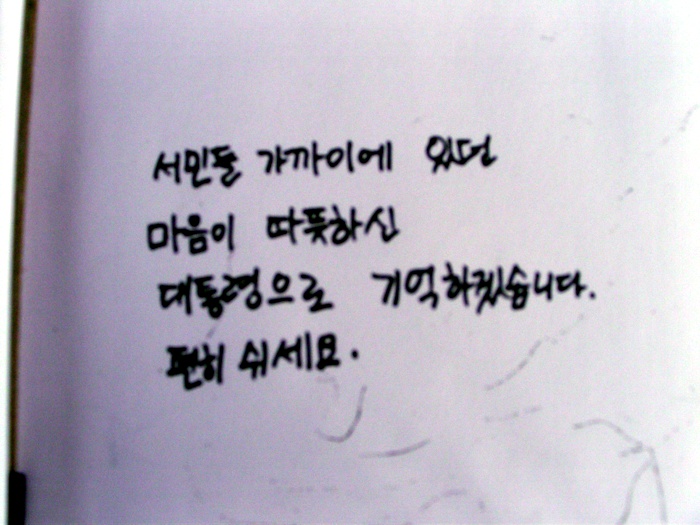 서민들 가까이에 있던
마음이 따뜻하신
대통령으로 기억하겠습니다.
편히 쉬세요.